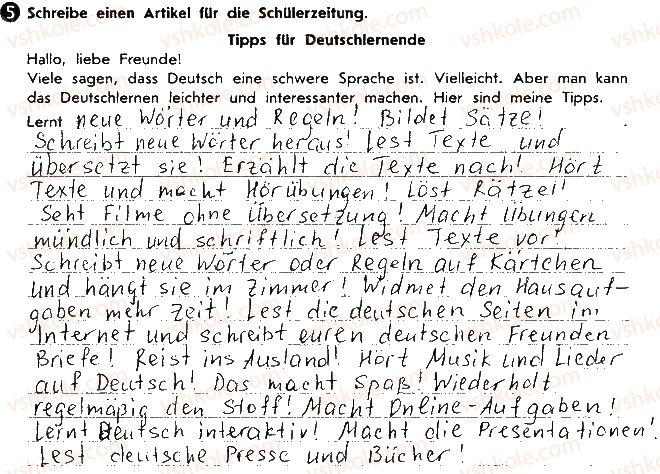 5 Schreibe einen Artikel für die Schülerzeitung.
Tipps für Deutschlernende
Hallo, liebe Freunde!
Viele sagen, dass Deutsch eine schwere Sprache ist. Vielleicht. Aber man kann
das Deutschlernen leichter und interessanter machen. Hier sind meine Tipps.
Lernt neue Wörter und Regeln! Bildet Sätze!
Schreibt neue Wörter heraus! Lest Texte und
übersetzt sie! Erzählt die Texte nach! Hört
Texte und macht Hörübungen! Löst Rätzel!
Seht Filme ohne Übersetzung! Macht Übungen
mündlich und schriftlich! Lest Texte vor!
Schreibt neue Wörter oder Regeln auf Kärtchen
und hängt sie im Zimmer! Widmet den Hausauf-
gaben mehr Zeit! Lest die deutschen Seiten im
Internet und schreibt euren deutschen Freunden
Briefe! Reist ins Ausland! Hört Musik und Lieder
auf Deutsch! Das macht Spaß! Wiederholt
regelmäßig den Stoff! Macht Online-Aufgaben!
Lernt Deutsch interaktiv! Macht die Presentationen!
Lest deutsche Presse und Bücher!